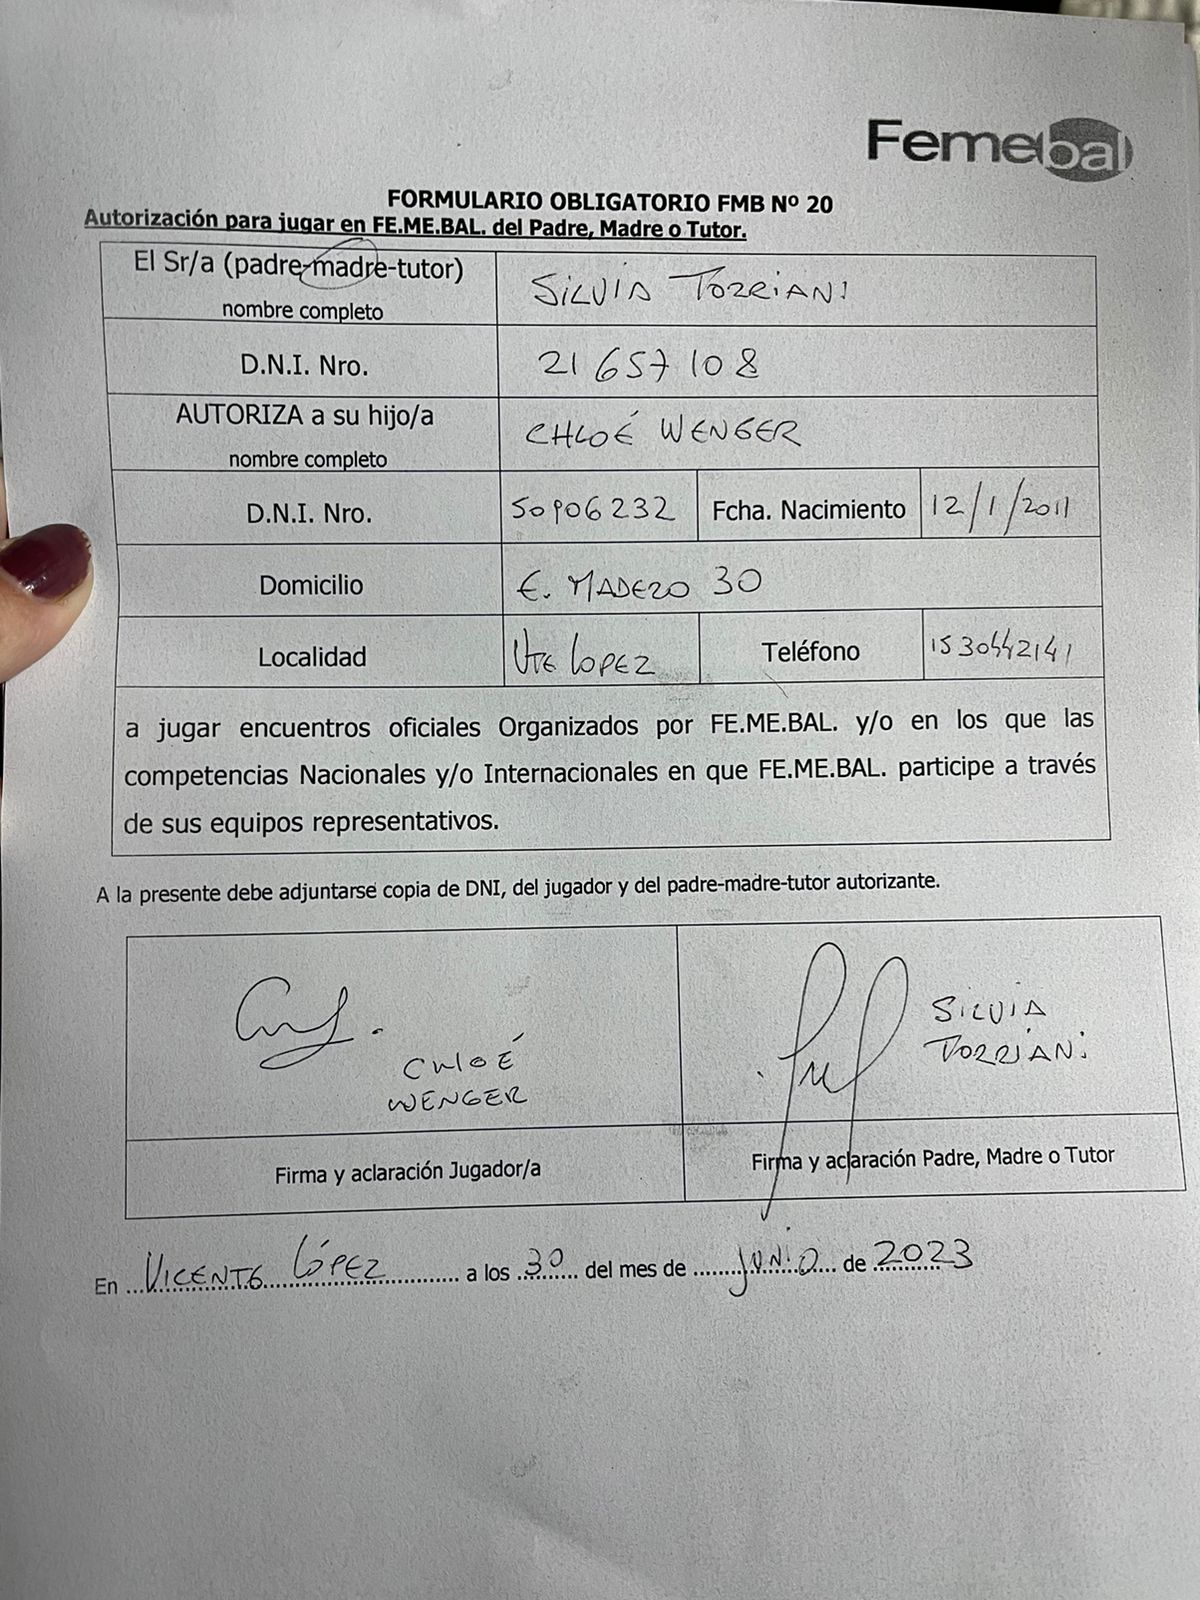 Femebal
FORMULARIO OBLIGATORIO FMB Nº 20
Autorización para jugar en FE.ME.BAL. del Padre, Madre o Tutor.
El Sr/a (padre-madre-tutor)
nombre completo
SILVIA TORRIANI
D.N.I. Nro.
21 657 108
AUTORIZA a su hijo/a
nombre completo
CHLOÉ WENGER
D.N.I. Nro.
50906232
Fcha. Nacimiento
12/1/2011
Domicilio
E. MADERO 30
Localidad
VTE LOPEZ
Teléfono
1530442141
a jugar encuentros oficiales Organizados por FE.ME.BAL. y/o en los que las
competencias Nacionales y/o Internacionales en que FE.ME.BAL. participe a través
de sus equipos representativos.
A la presente debe adjuntarse copia de DNI, del jugador y del padre-madre-tutor autorizante.
CHLOÉ
WENGER
SILVIA
TORRIANI
Firma y aclaración Jugador/a
Firma y aclaración Padre, Madre o Tutor
En ...VICENTE LÓPEZ... a los ...30... del mes de ...JUNIO... de 2023